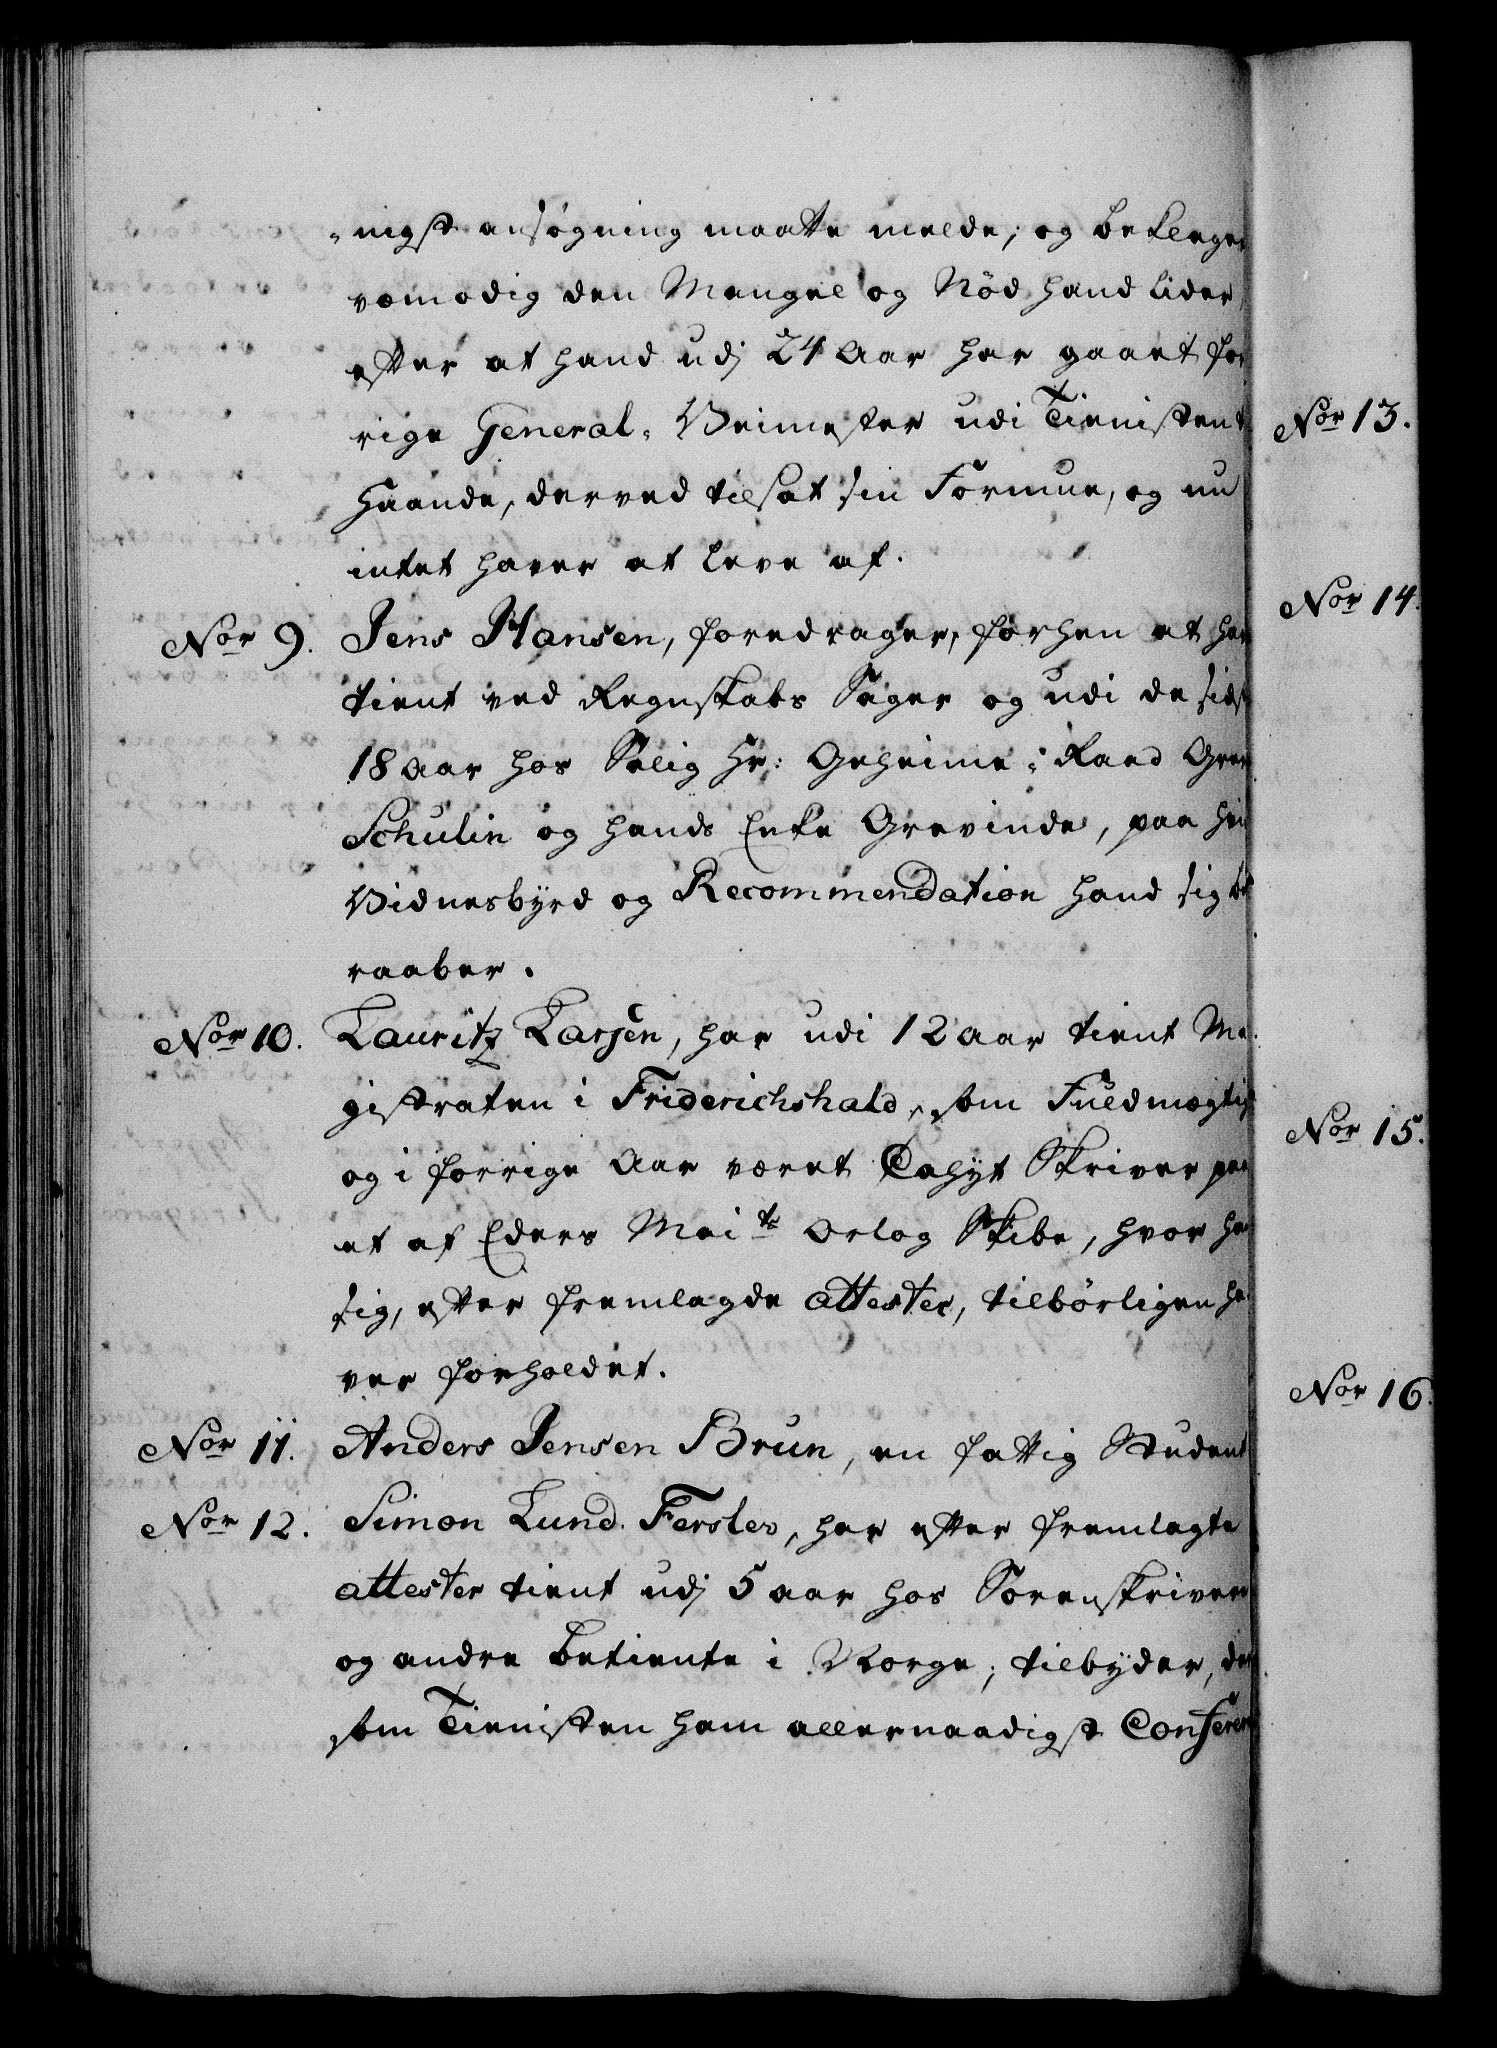 -nigst ansøgning maatte melde; og beklager
vemodig den Mangel og Nød hand lider
efter at hand udj 24 Aar har gaaet for
rige General-Veimester udi Tienisten t
Haande, derved tilsat sin Formue, og nu
intet haver at leve af.
Nor 9. Jens Hansen, foredrager, forhen at har
tient ved Regnskabs Sager og udi de sidst
18 Aar hos Salig Hr: Geheime-Raad Grev
Schulin og hands Enke Grevinde, paa hvis
Vidnesbyrd og Recommendation hand sig be
raaber.
Nor 10. Lauritz Larsen, har udi 12 Aar tient Ma-
gistraten i Friderichshald, som Fuldmægtig
og i forrige Aar været Cahyt Skriver paa
et af Eders Maits Orlog Skibe, hvor ha
sig, efter fremlagde attester, tilbørligen ha
ver forholdet.
Nor 11. Anders Jensen Brun, en fattig Student
Nor 12. Simon Lund. Ferslev, har efter fremlagte
attester tient udj 5 aar hos Sorenskrivere
og andre betiente i Norge; tilbyder, der
som Tienisten ham allernaadigst Conferer
Nor 13.
Nor 14.
Nor 15.
Nor 16.